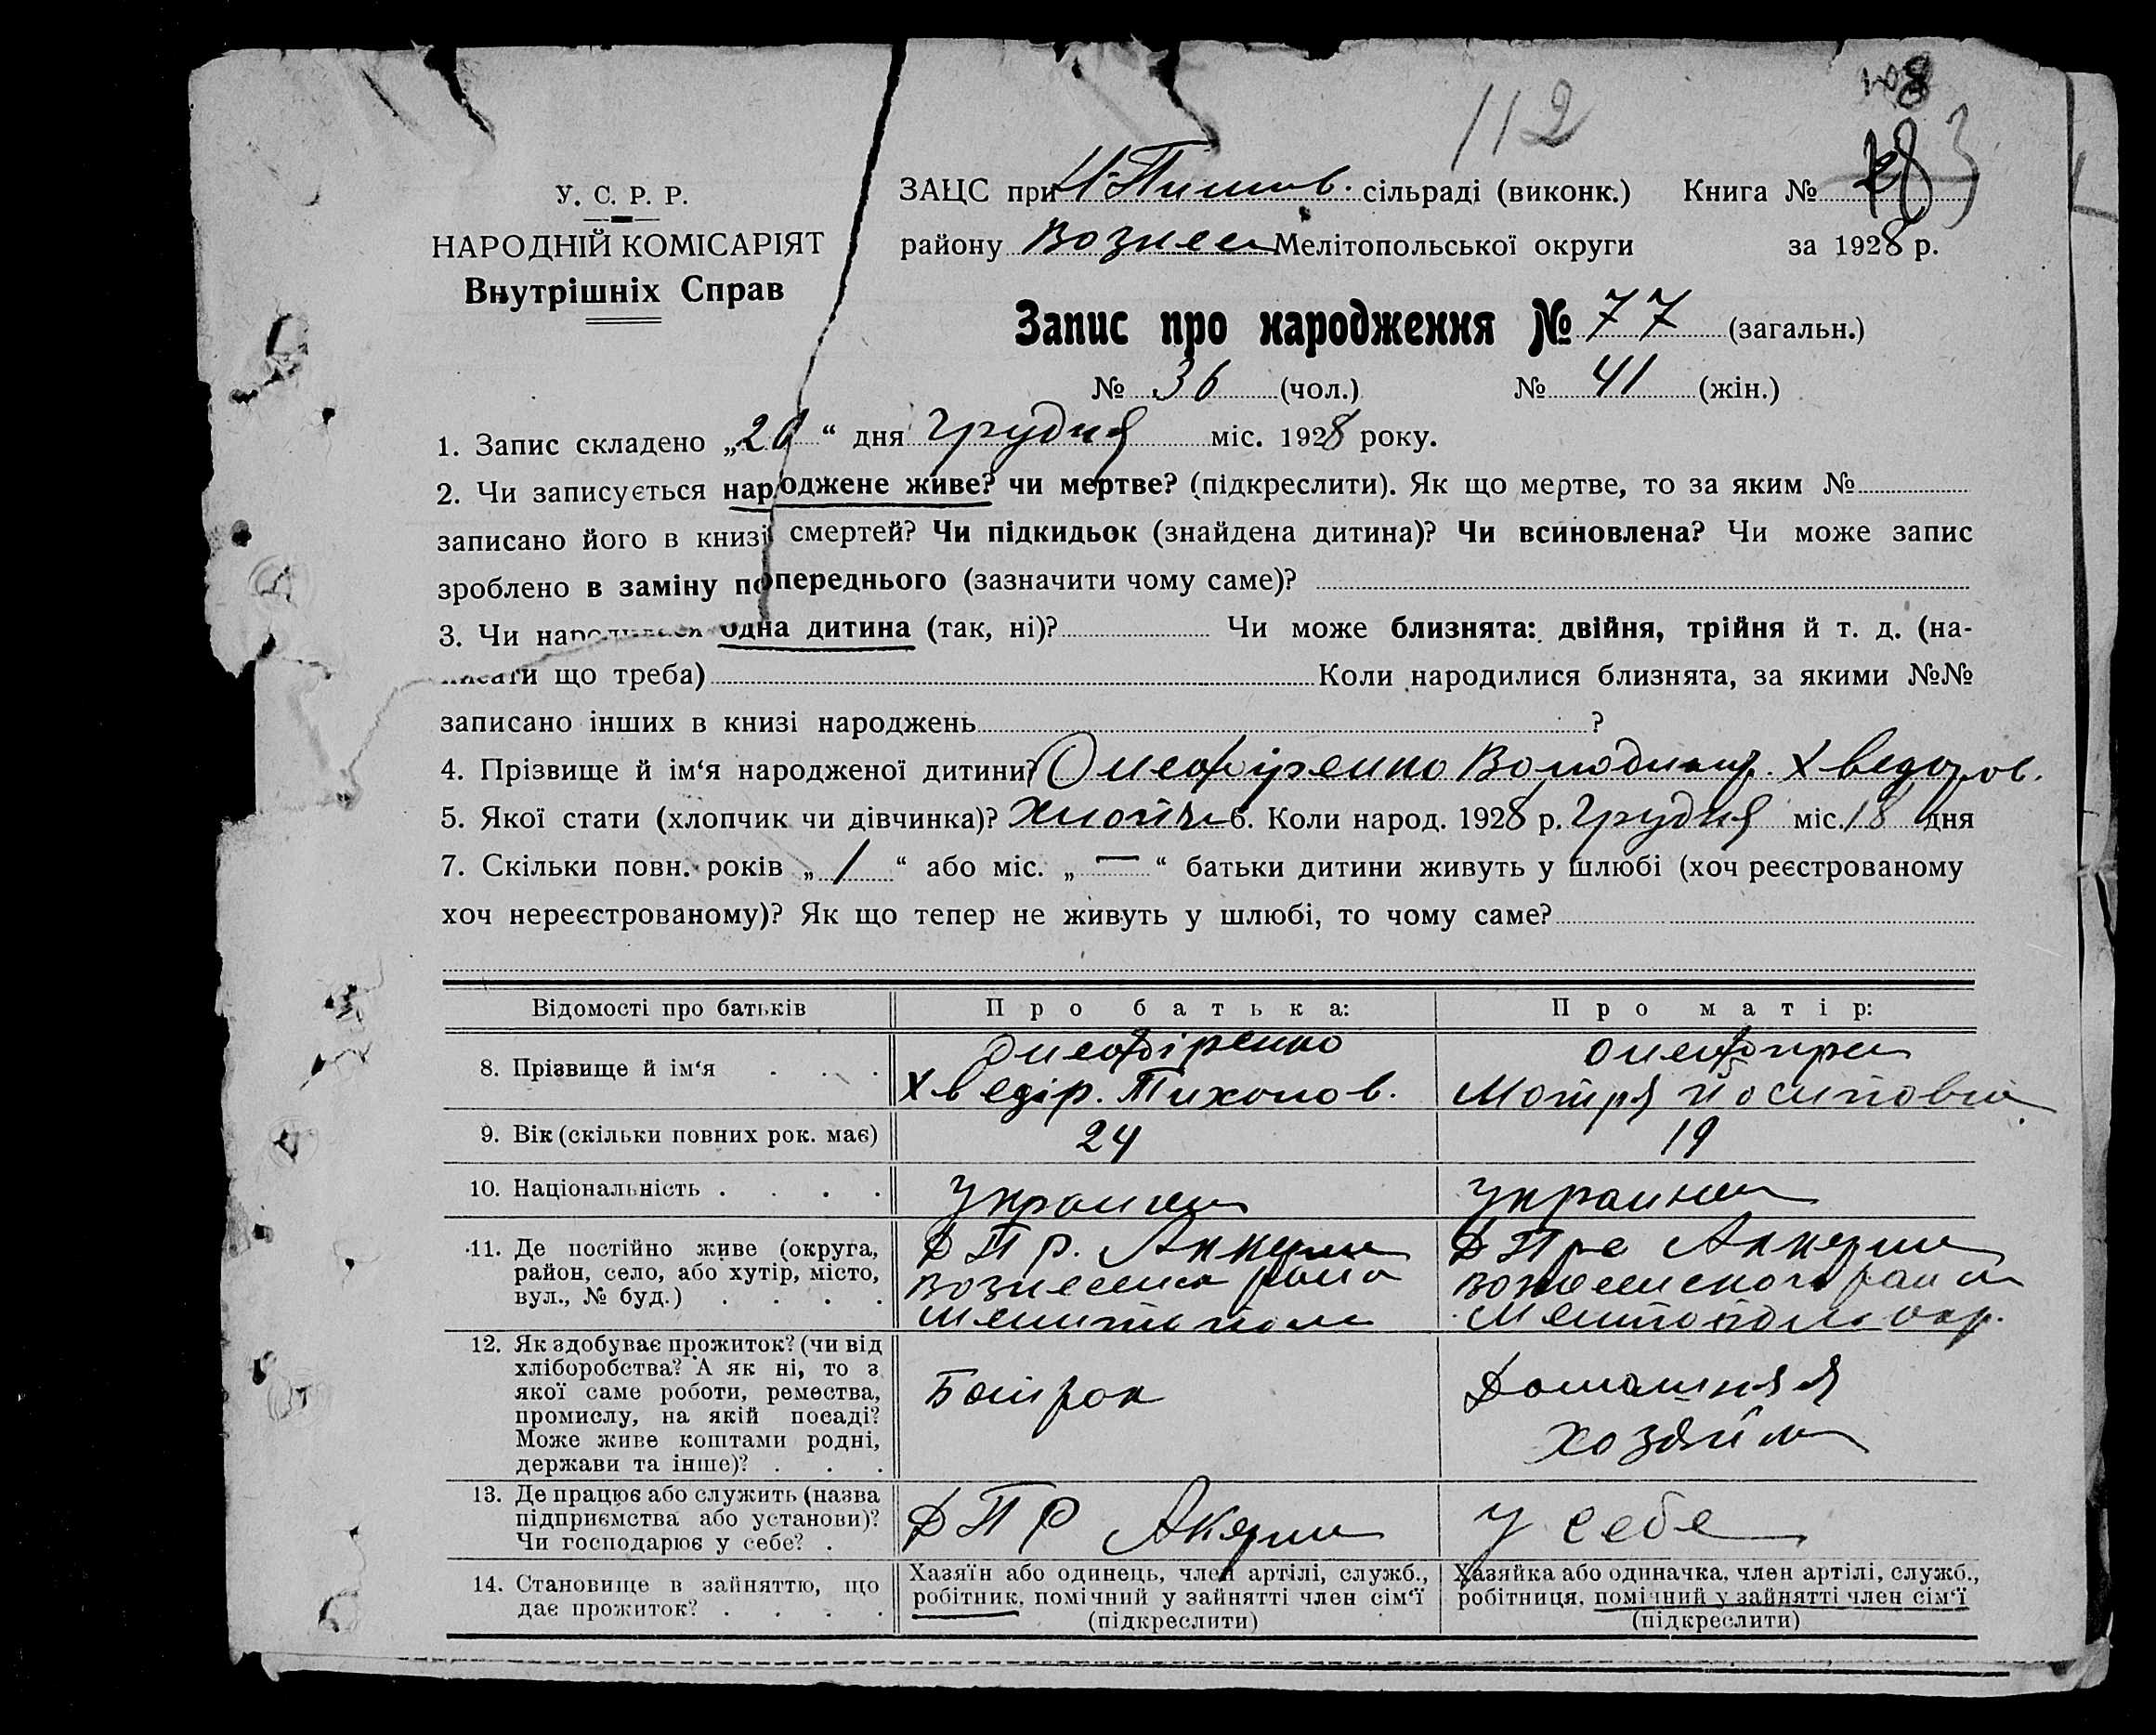 112
108
У. С. Р. Р.
НАРОДНІЙ КОМІСАРІЯТ
Внутрішніх Справ
ЗАЦС при Н-Пилип. сільраді (виконк.) Книга №
району Вознесен Мелітопольської округи за 1928 р.
Запис про народження № 77 (загальн.)
№ 36 (чол.) № 41 (жін.)
1. Запис складено „20“ дня Грудня міс. 1928 року.
2. Чи записується народжене живе? чи мертве? (підкреслити). Як що мертве, то за яким №
записано його в книзі смертей? Чи підкидьок (знайдена дитина)? Чи всиновлена? Чи може запис
зроблено в заміну попереднього (зазначити чому саме)?
3. Чи народилася одна дитина (так, ні)? Чи може близнята: двійня, трійня й т. д. (на-
писати що треба) Коли народилися близнята, за якими №№
записано інших в книзі народжень ?
4. Прізвище й ім‘я народженої дитини? Олефіренко Володимир. Хведоров.
5. Якої стати (хлопчик чи дівчинка)? Хлопчик 6. Коли народ. 1928 р. Грудня міс. 18 дня
7. Скільки повн. років „1“ або міс. „—“ батьки дитини живуть у шлюбі (хоч реєстрованому
хоч нереєстрованому)? Як що тепер не живуть у шлюбі, то чому саме?
Відомості про батьків Про батька: Про матір:
8. Прізвище й ім‘я Олефіренко Хведір. Тихонов. Олефіре Мотря Йосиповна
9. Вік (скільки повних рок. має) 24 19
10. Національність Украинец Украинка
11. Де постійно живе (округа, район, село, або хутір, місто, вул., № буд.) ДПР. Аккерм Вознесенск райо Мелитопол ДПР Аккерм Вознесенского район Мелитополь окр.
12. Як здобуває прожиток? (чи від хліборобства? А як ні, то з якої саме роботи, ремества, промислу, на якій посаді? Може живе коштами родні, держави та інше)? Батрак Домашняя хозяйка
13. Де працює або служить (назва підприємства або установи)? Чи господарює у себе? ДПР Акерм У себе
14. Становище в зайняттю, що дає прожиток? Хазяїн або одинець, член артілі, служб., робітник, помічний у зайнятті член сім‘ї (підкреслити) Хазяйка або одиначка, член артілі, служб., робітниця, помічний у зайнятті член сім‘ї (підкреслити)